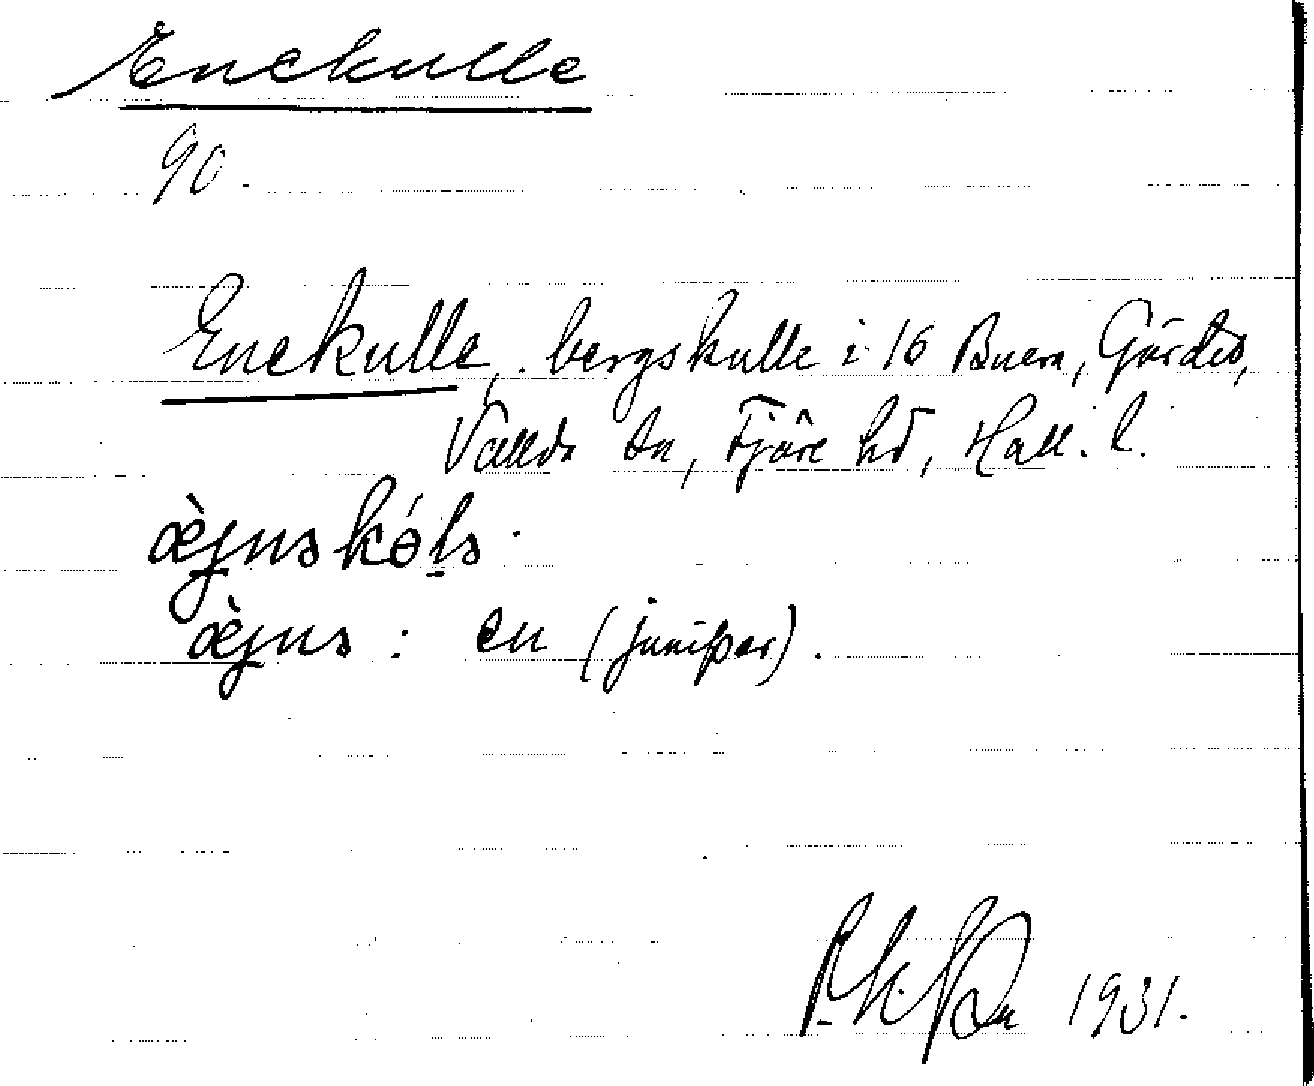 Enekulle
90.
Enekulle, bergskulle i 16 Buera, Gårdes,
Vallda sn, Fjäre hd, Hall. l.
æ̀jnəskóļə.
æ̀jnə: en (juniper).
1931.